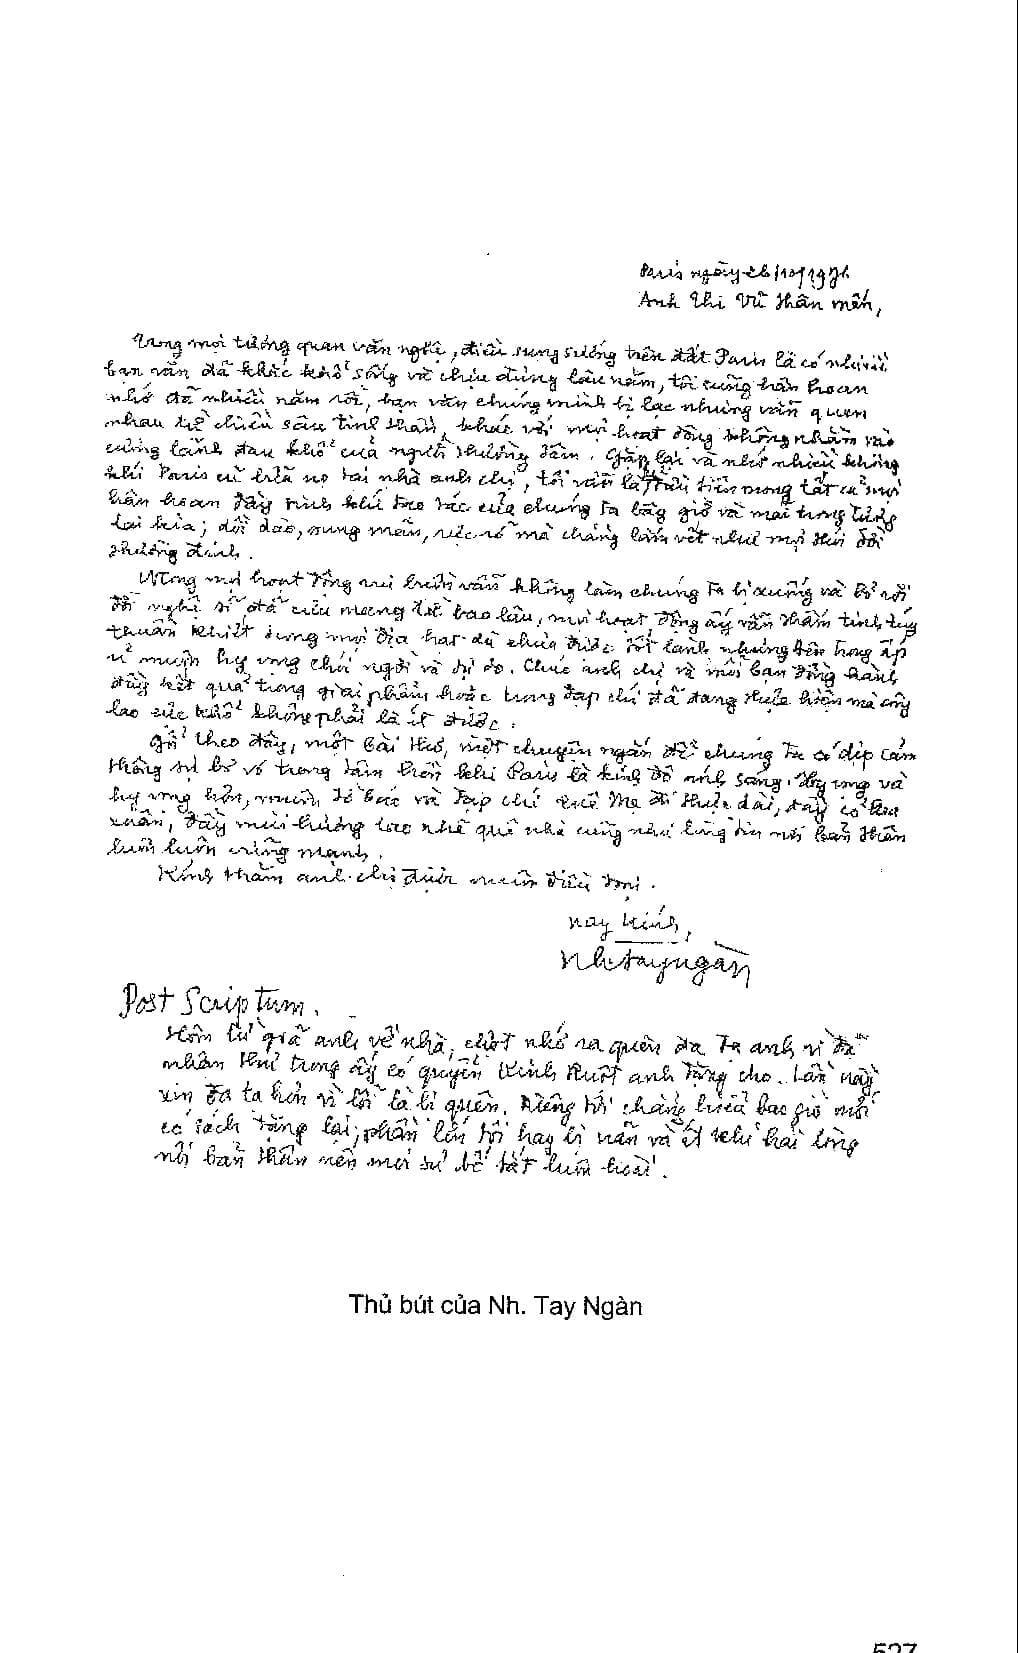 Paris ngày 26/10/1976
Anh Thi Vũ thân mến,
Trong mọi tương quan văn nghệ, điều sung sướng trên đất Paris là có nhiều
bạn văn đã khắc khổ sống và chịu đựng lâu năm, tôi cũng hân hoan
nhớ đã nhiều năm rồi, bạn văn chúng mình bị lạc nhưng vẫn quen
nhau từ chiều sâu tinh thần, khác với mọi hoạt động không nhằm vào
cùng lãnh đau khổ của người thường dân. Gặp lại và nhớ nhiều không
khí Paris cũ bữa nọ tại nhà anh chị, tôi vẫn là đầu tiên mong tất cả mọi
hân hoan đầy sinh khí tạo tác của chúng ta bây giờ và mai trong tương
lai kia; dồi dào, sung mãn, rực rỡ mà chẳng lấm vết như mọi thói đời
thường tình.
Mong mọi hoạt động vui buồn vẫn không làm chúng ta bị xuống và bỏ rơi
đời nghệ sĩ đã cưu mang từ bao lâu, mọi hoạt động ấy vẫn thấm tinh túy
thuần khiết trong mọi địa hạt dù chưa được tốt lành nhưng bên trong ấp
ủ muôn hy vọng chói ngời và tự do. Chúc anh chị và mỗi bạn đồng hành
đầy kết quả trong giai phẩm hoặc trong tạp chí đã đang thực hiện mà công
lao cực khổ không phải là ít được.
Gởi theo đây, một bài thơ, một chuyện ngắn để chúng ta có dịp cảm
thông sự bơ vơ trong tâm hồn khi Paris là kinh đô ánh sáng. Hy vọng và
hy vọng hơn, muôn tờ báo và tạp chí Quê Mẹ đi thực dài, đầy cỏ hoa
xuân, đầy mùi hương lao nhê quê nhà cũng như lòng tin nơi bản thân
luôn luôn vững mạnh.
Kính thăm anh chị được muôn điều đẹp.
nay kính,
Nh. Tay Ngàn
Post Scriptum.
Hôm từ giã anh về nhà, chợt nhớ ra quên đa tạ anh vì đã
nhận thư trong ấy có quyển Kinh Ruột anh tặng cho. Lần này
xin đa tạ hơn vì lỗi là bị quên. Riêng tôi chẳng hiểu bao giờ mới
có sách tặng lại; phần lớn tôi hay bị nản và ít khi hài lòng
nơi bản thân nên mọi sự bế tắt luôn hoài.
Thủ bút của Nh. Tay Ngàn
527